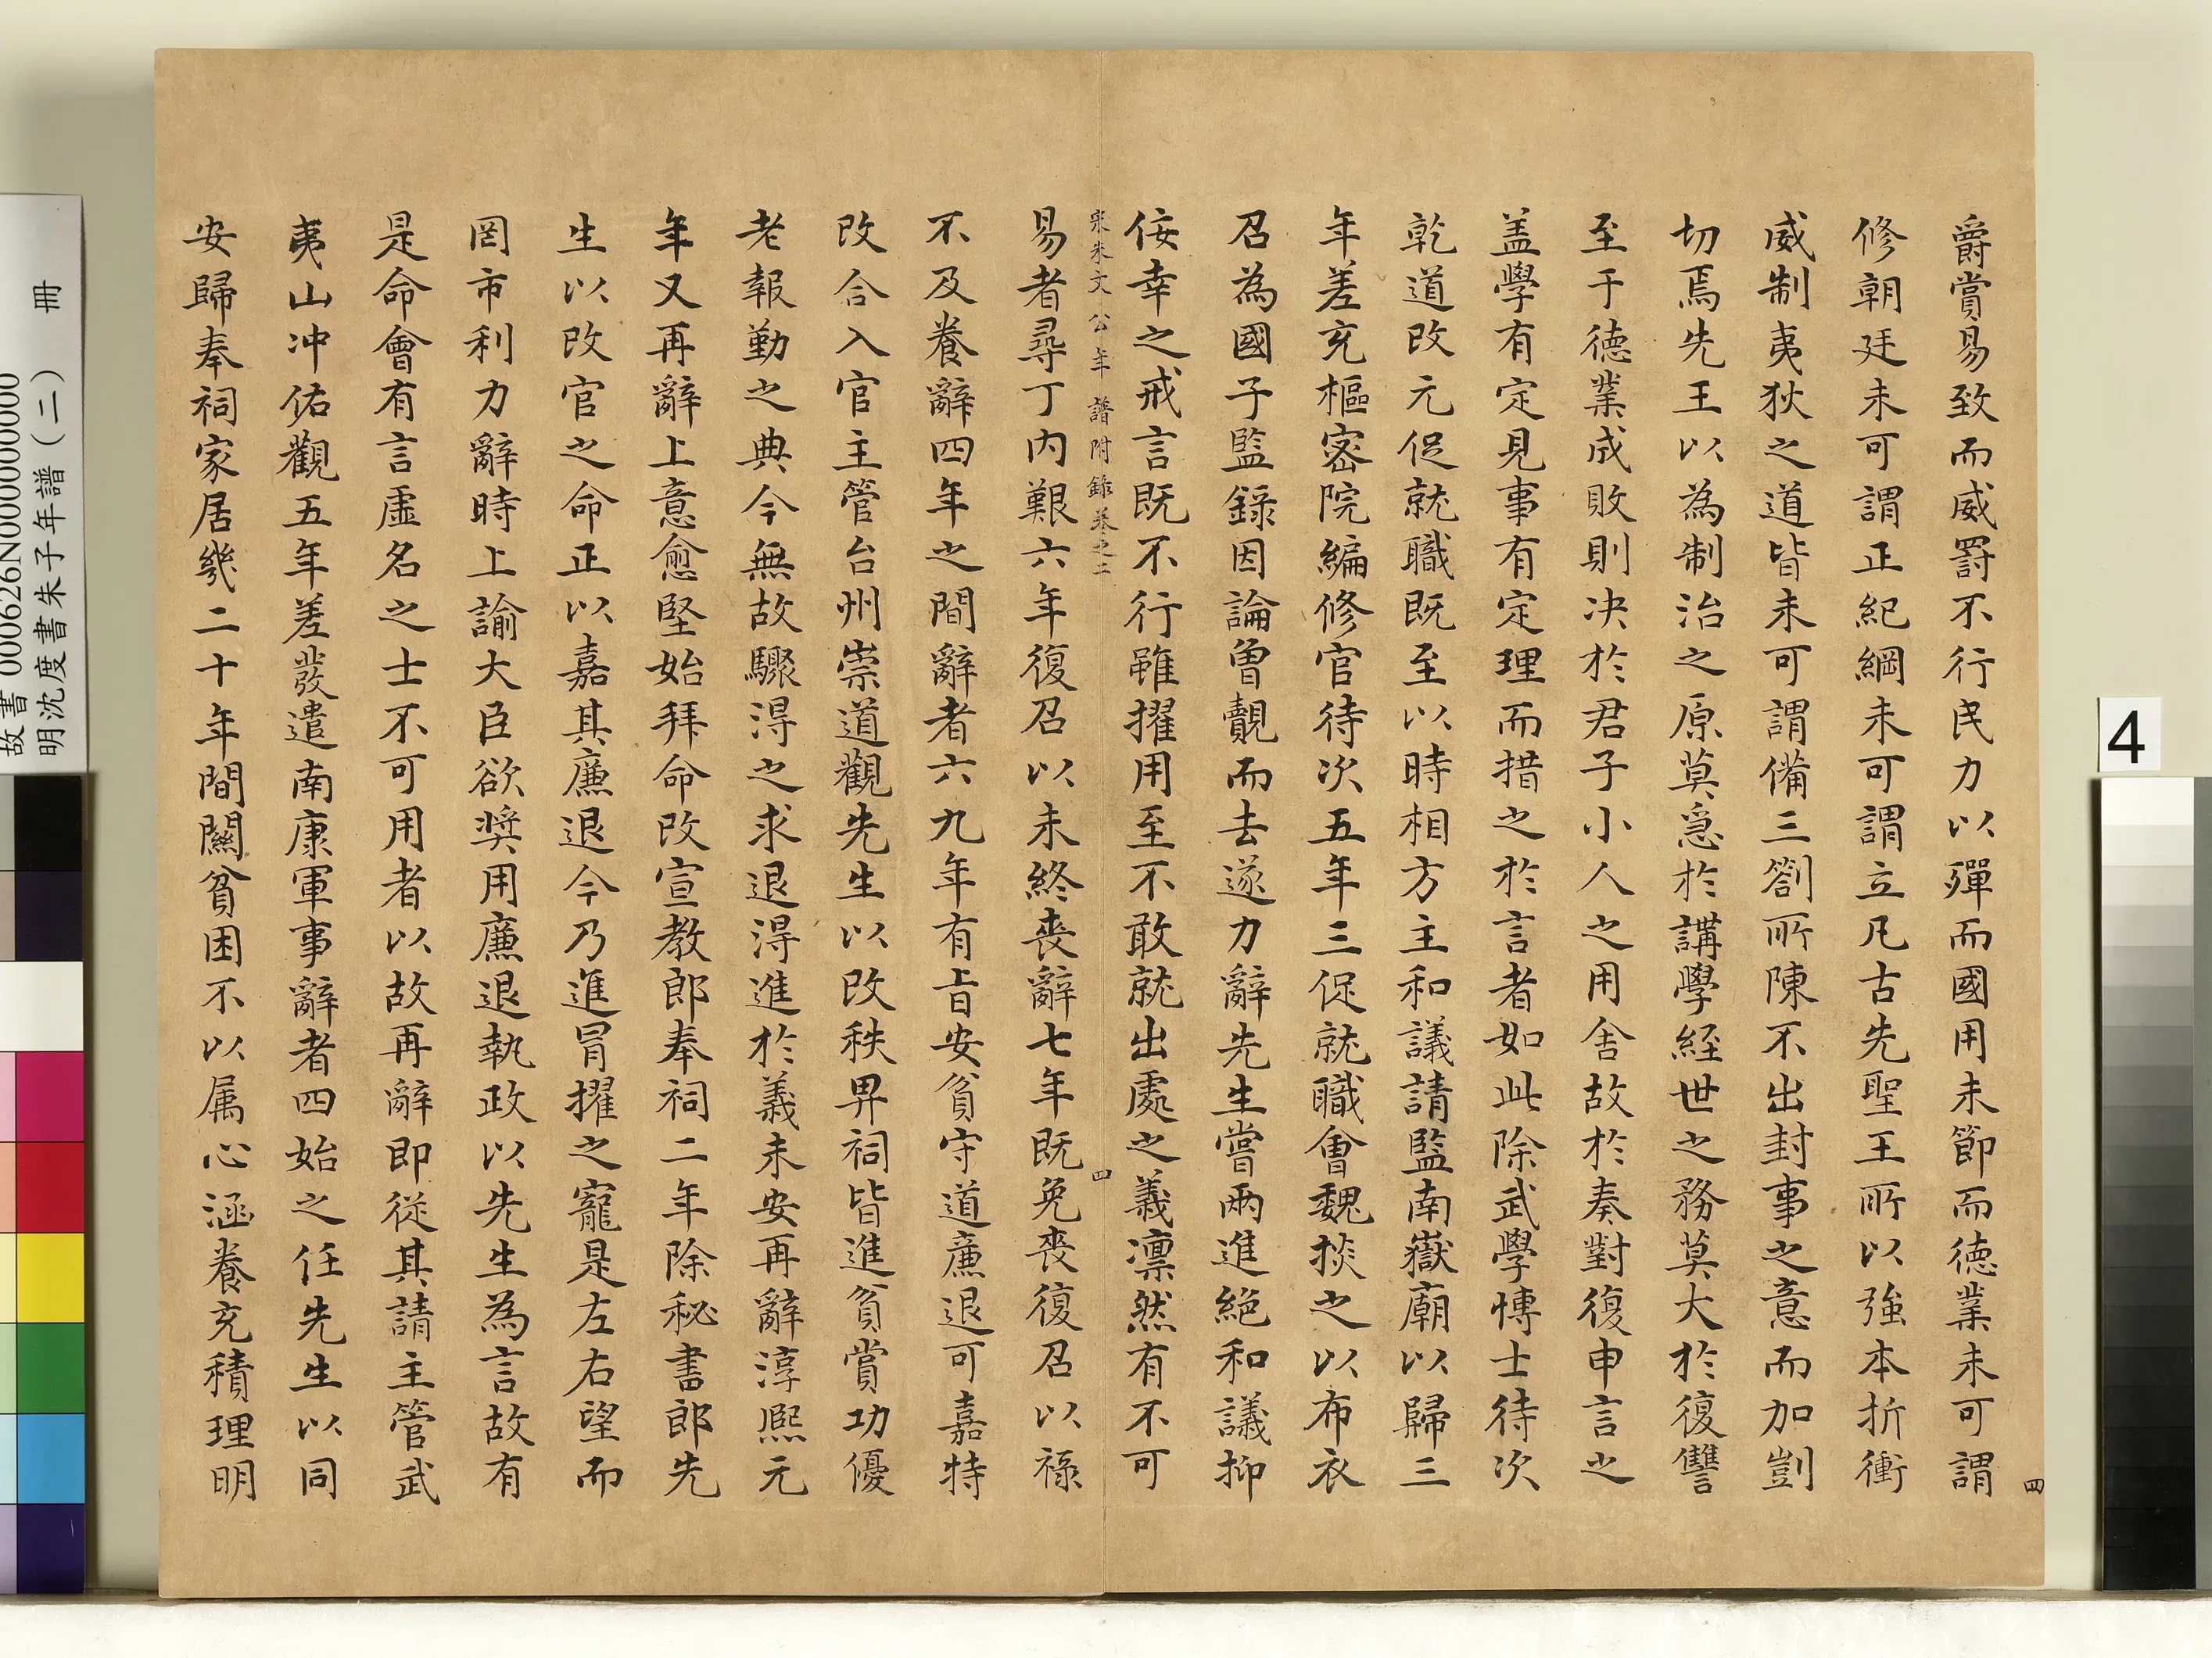 爵賞易致而威罰不行民力以殫而國用未節而德業未可謂
修朝廷未可謂正紀綱未可謂立凡古先聖王所以強本折衝
威制夷狄之道皆未可謂備三劄所陳不出封事之意而加剴
切焉先王以為制治之原莫急於講學經世之務莫大於復讐
至于德業成敗則决於君子小人之用舍故於奏對復申言之
盖學有定見事有定理而措之於言者如此除武學博士待次
乾道改元促就職既至以時相方主和議請監南嶽廟以歸三
年差充樞密院編修官待次五年三促就職會魏掞之以布衣
召為國子監錄因論曾覿而去遂力辭先生嘗兩進絕和議抑
佞幸之戒言既不行雖擢用至不敢就出處之義凛然有不可
宋朱文公年譜附錄卷之二
四
易者尋丁内艱六年復召以未終喪辭七年既免喪復召以祿
不及養辭四年之間辭者六九年有旨安貧守道廉退可嘉特
改合入官主管台州崇道觀先生以改秩畀祠皆進貧賞功優
老報勤之典今無故驟得之求退得進於義未安再辭淳熙元
年又再辭上意愈堅始拜命改宣教郎奉祠二年除秘書郎先
生以改官之命正以嘉其廉退今乃進冒擢之寵是左右望而
罔市利力辭時上諭大臣欲奨用廉退執政以先生為言故有
是命會有言虛名之士不可用者以故再辭即從其請主管武
夷山冲佑觀五年差發遣南康軍事辭者四始之任先生以同
安歸奉祠家居幾二十年間關貧困不以属心涵養充積理明
四
4
故書 000626N000000000
明沈度書朱子年譜(二) 冊